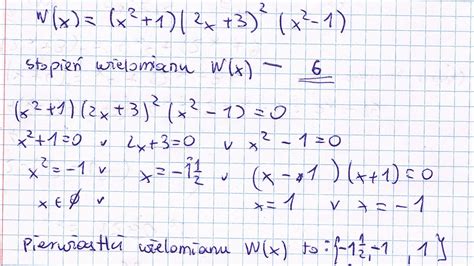 W(x) = (x²+1)(2x+3)²(x²-1)
stopień wielomianu W(x) — 6
(x²+1)(2x+3)²(x²-1)=0
x²+1=0 ∨ 2x+3=0 ∨ x²-1=0
x²=-1 ∨ x=-1½ ∨ (x-1)(x+1)=0
x∈∅ ∨ x=1 ∨ x=-1
pierwiastki wielomianu W(x) to: {-1½,-1, 1}